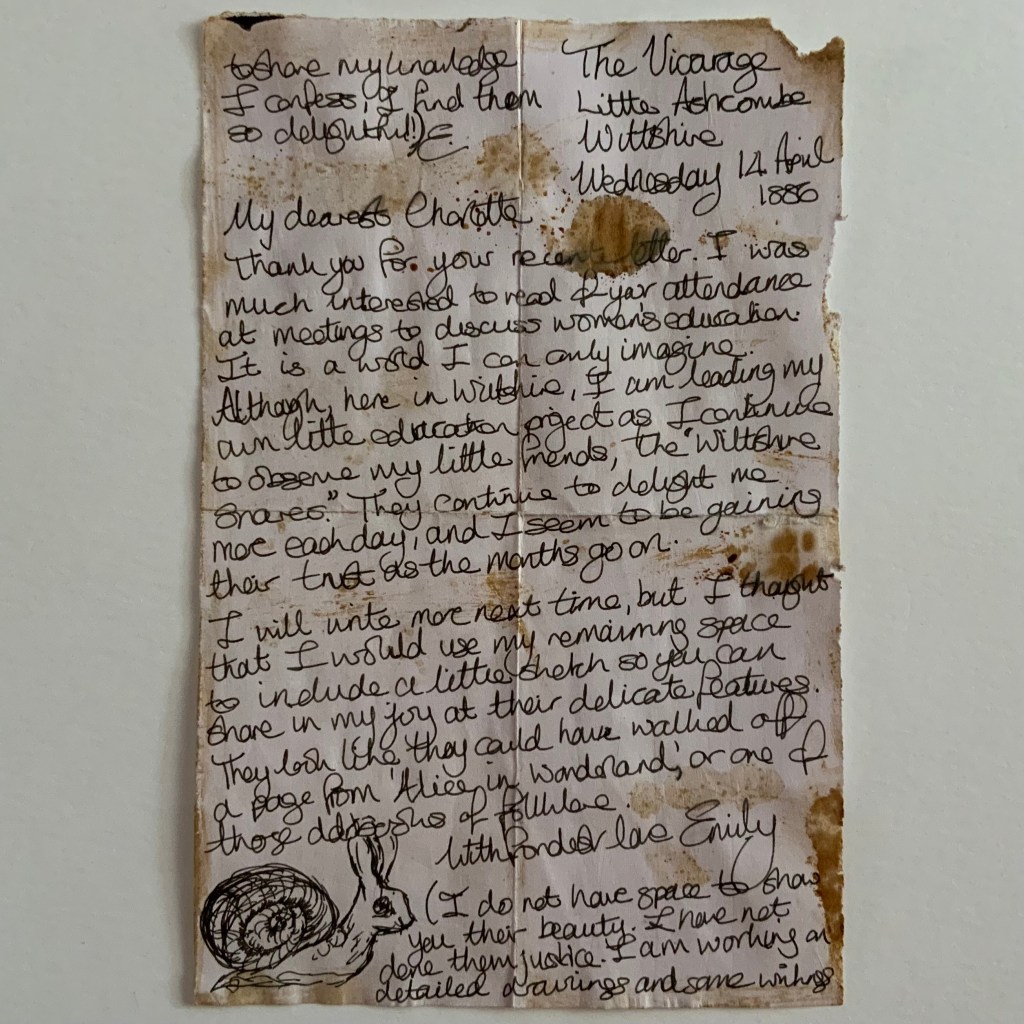 The Vicarage
Little Ashcombe
Wiltshire
Wednesday 14 April
1886
My dearest Charlotte
Thank you for your recent letter. I was
much interested to read of your attendance
at meetings to discuss women's education.
It is a world I can only imagine.
Although, here in Wiltshire, I am leading my
own little education project as I continue
to observe my little friends, the "Wiltshire
Snares." They continue to delight me
more each day, and I seem to be gaining
their trust as the months go on.
I will write more next time, but I thought
that I would use my remaining space
to include a little sketch so you can
share in my joy at their delicate features.
They look like they could have walked off
a page from 'Alice in Wonderland', or one of
those of folklore.
With fondest love Emily
(I do not have space to show
you their beauty. I have not
done them justice. I am working on
detailed drawings and some writings
to share my knowledge
I confess, I find them
so delightful!) E